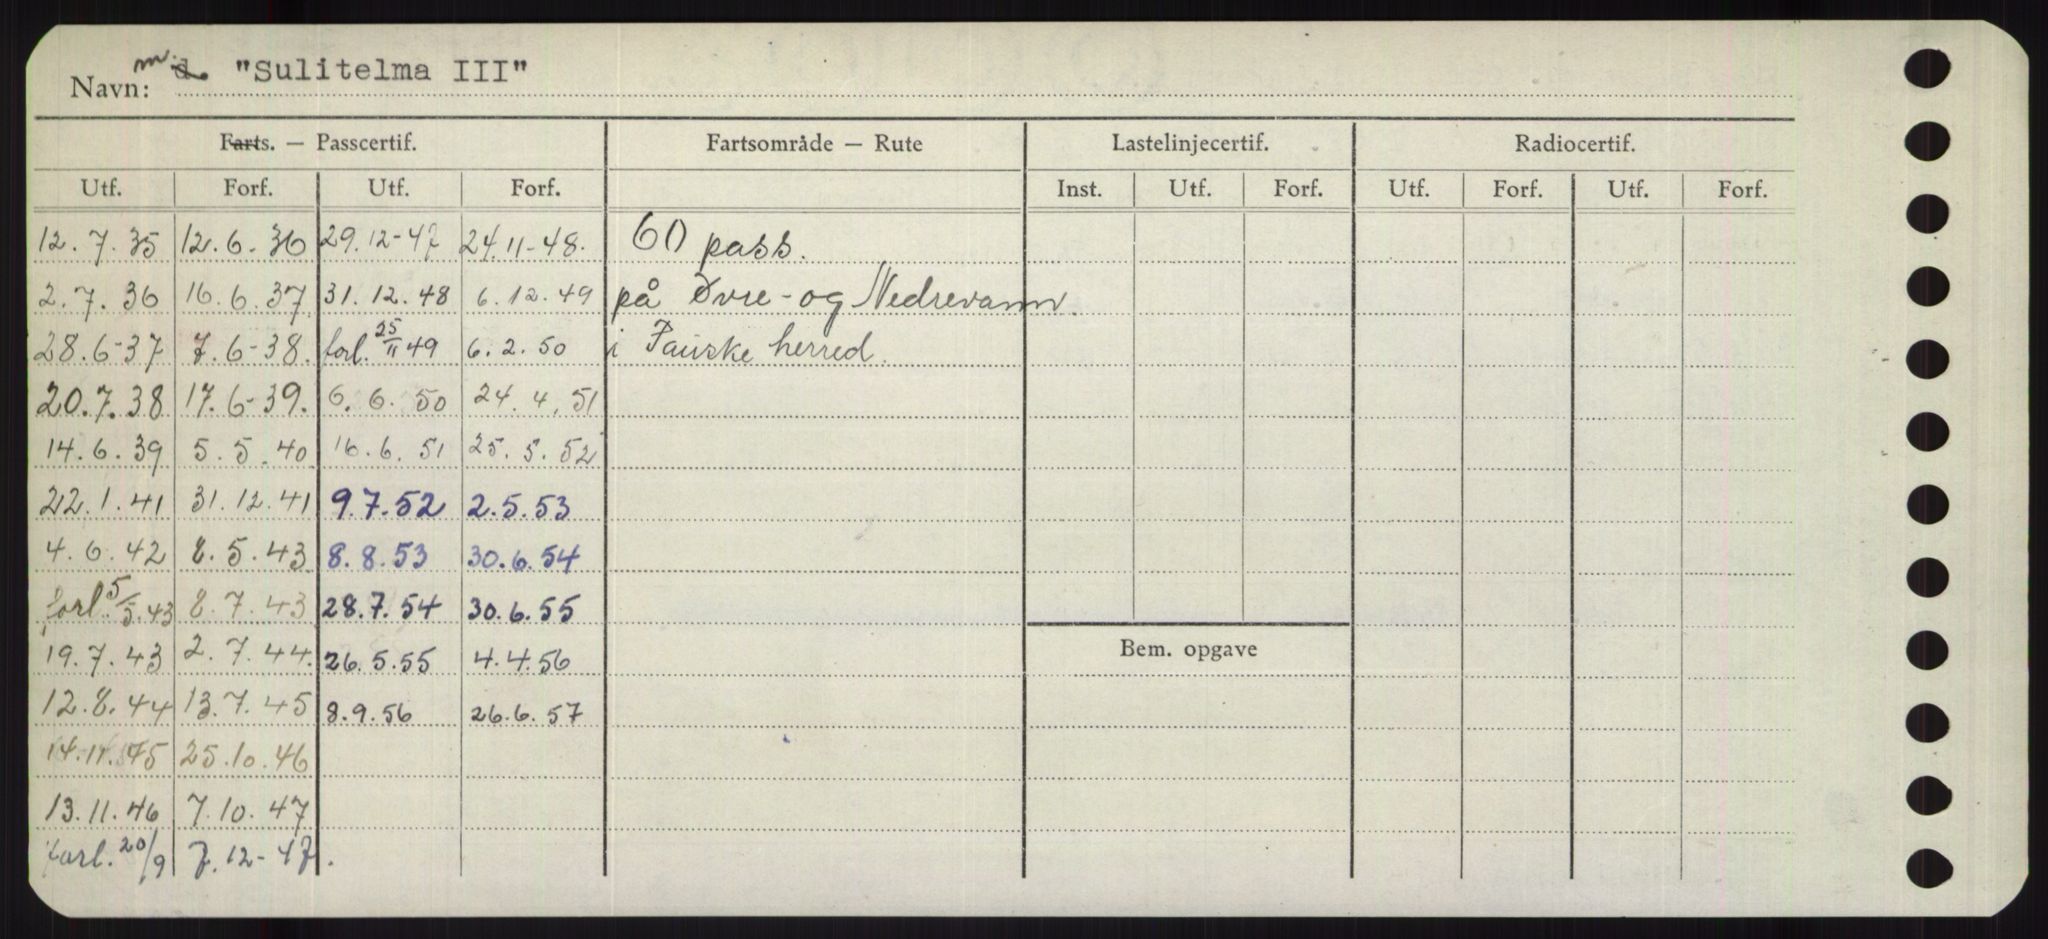 Navn: m. "Sulitelma III"
Farts. — Passcertif. Fartsområde — Rute Lastelinjecertif. Radiocertif.
Utf. Forf. Utf. Forf. Inst. Utf. Forf. Utf. Forf. Utf. Forf.
12.7.35 12.6.36 29.12-47 24.11-48. 60 pass.
2.7.36 16.6.37 31.12.48 6.12.49 på Øvre- og Nedrevann
28.6-37 7.6-38. forl. 25/11 49 6.2.50 i Fauske herred.
20.7.38 17.6-39. 6.6.50 24.4.51
14.6.39 5.5.40 16.6.51 25.5.52
22.1.41 31.12.41 9.7.52 2.5.53
4.6.42 8.5.43 8.8.53 30.6.54
forl. 5/5.43 8.7.43 28.7.54 30.6.55
19.7.43 2.7.44. 26.5.55 4.4.56 Bem. opgave
12.8.44 13.7.45 8.9.56 26.6.57
14.11.45 25.10.46
13.11.46 7.10.47
forl. 20/9 7.12-47.